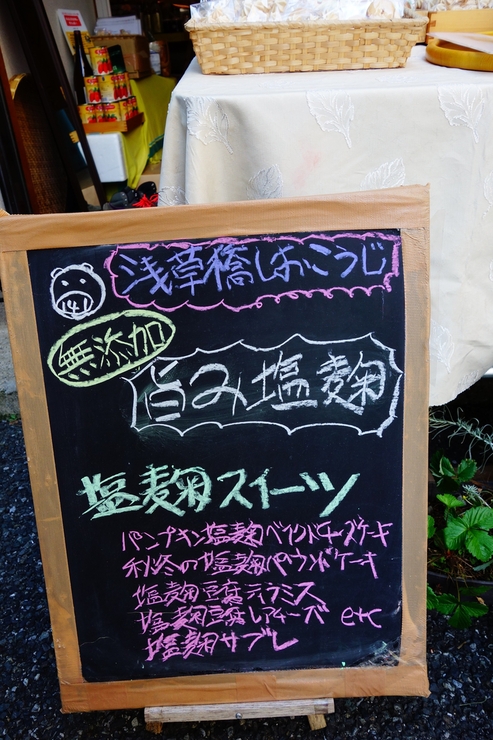 浅草橋しおこうじ
無添加
旨み塩麹
塩麹スイーツ
パンプキン塩麹ベイクドチーズケーキ
秋冬の塩麹パウンドケーキ
塩麹豆腐ティラミス
塩麹豆腐レアチーズ etc
塩麹サブレ